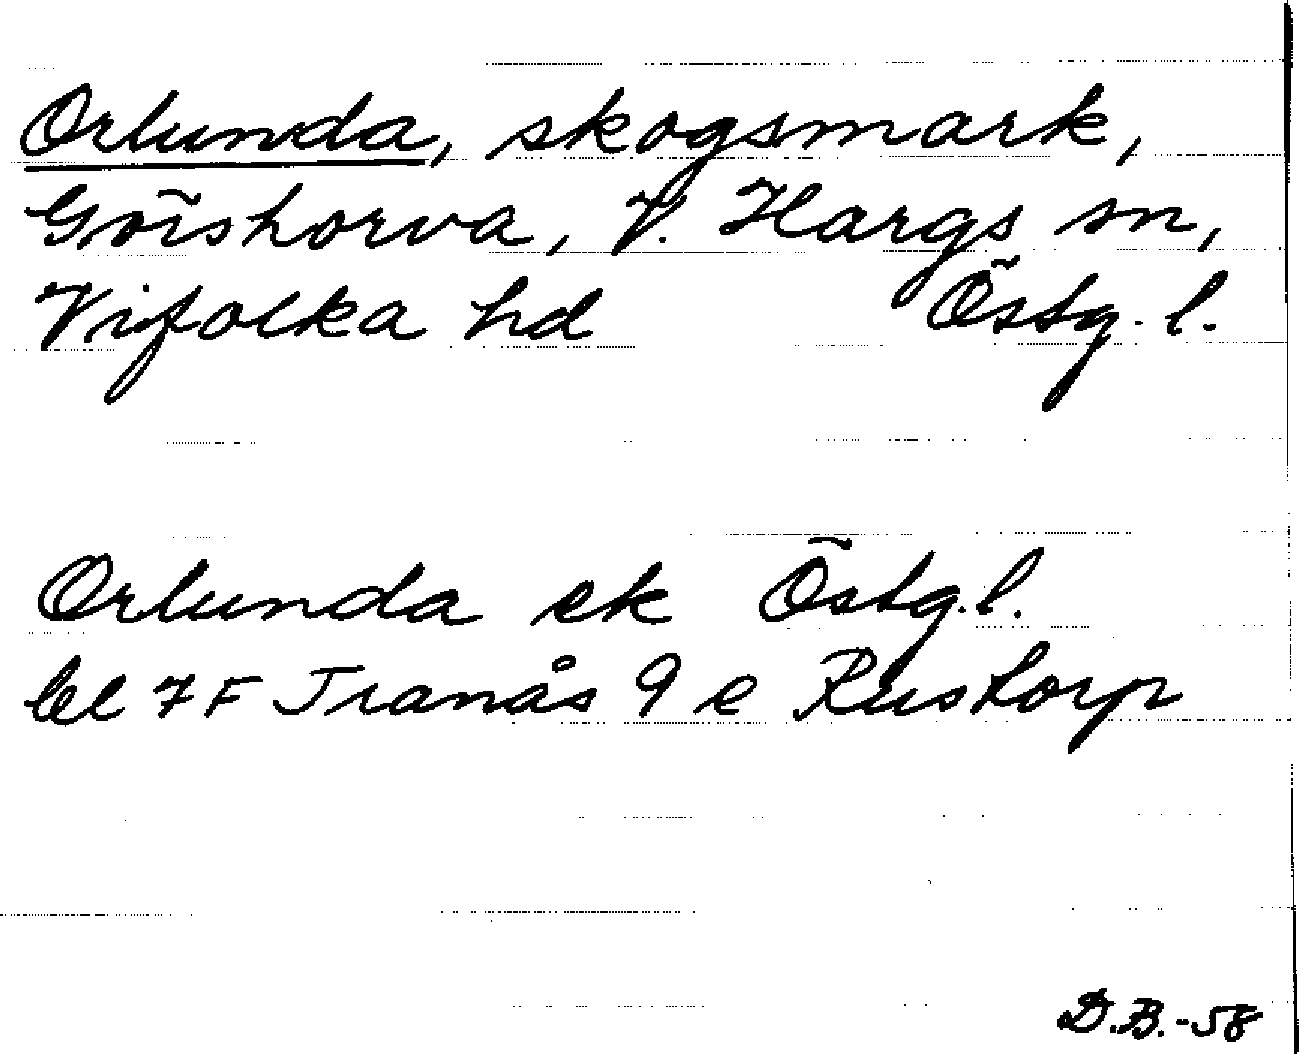 Orlunda, skogsmark,
Göishorva, V. Hargs sn,
Vifolka hd Östg. l.
Orlunda ek Östg. l.
bl 7F Tranås 9 e Rustorp
D.B.-58